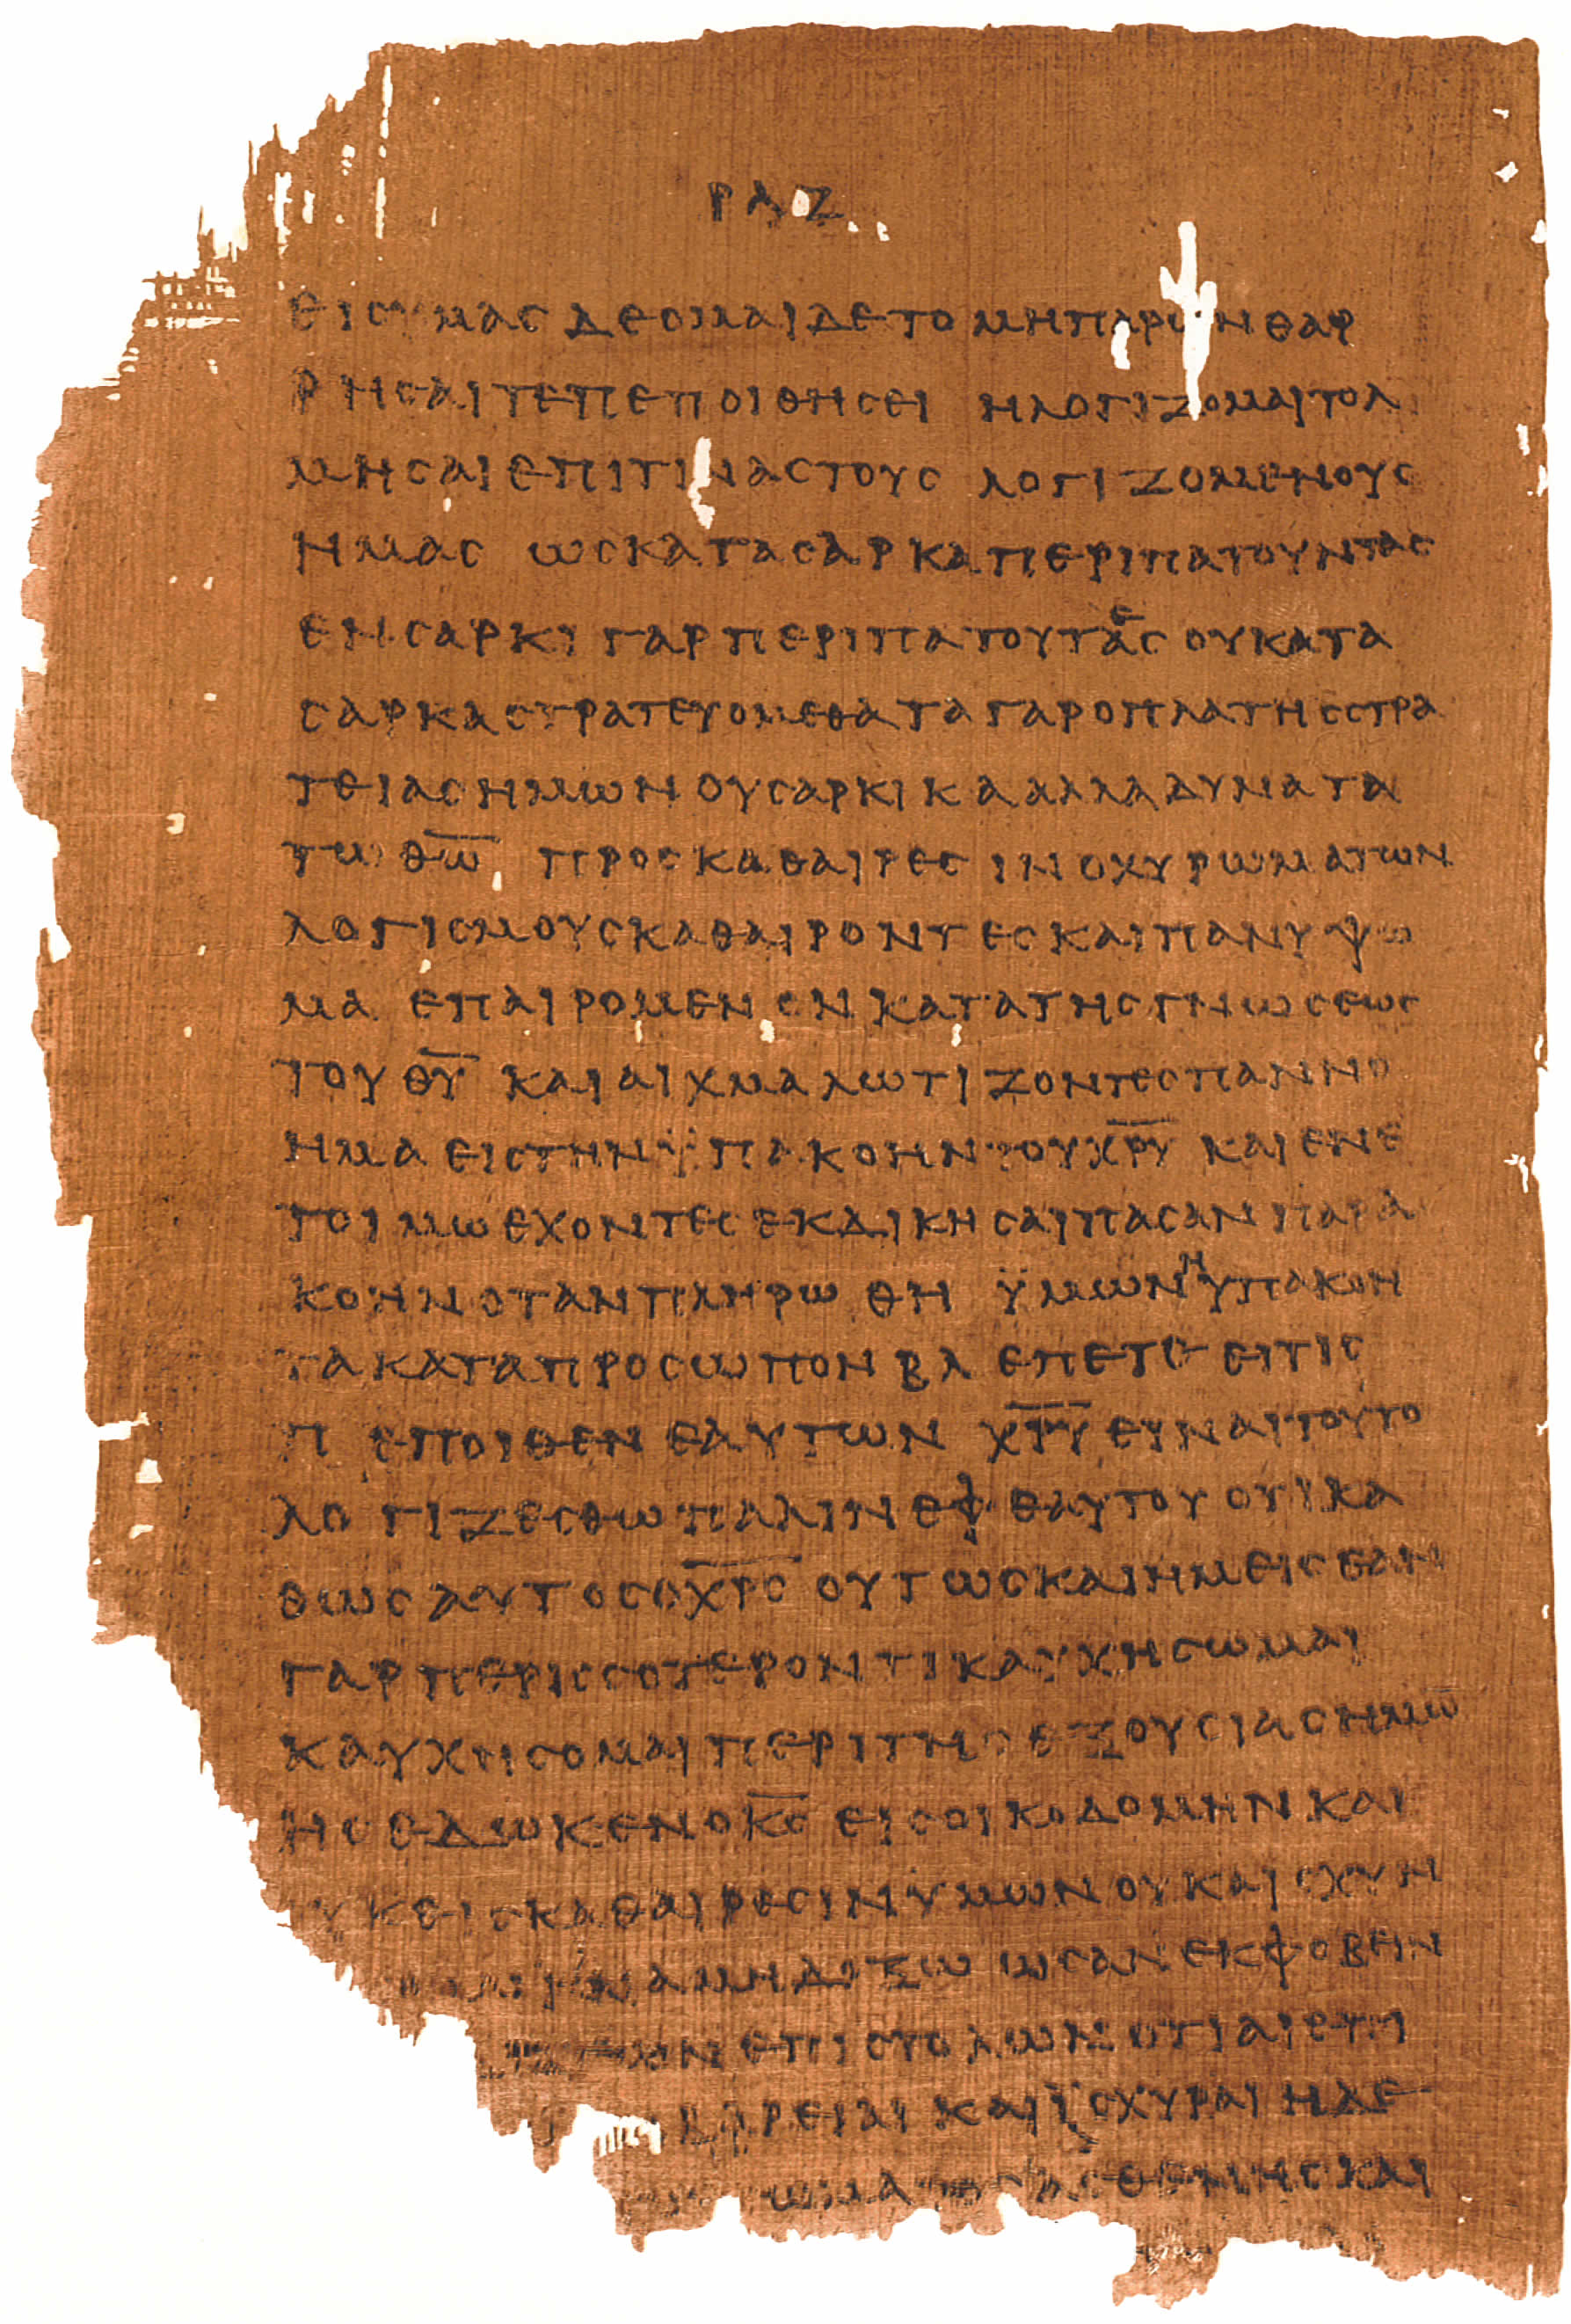 ΡΛΖ
ΕΙϹΥΜΑϹ ΔΕΟΜΑΙΔΕΤΟΜΗΠΑΡΩΝΘΑΡ
ΡΗϹΑΙΤΕΠΕΠΟΙΘΗϹΕΙ ΗΛΟΓΙΖΟΜΑΙΤΟΛ
ΜΗϹΑΙΕΠΙΤΙΝΑϹΤΟΥϹ ΛΟΓΙΖΟΜΕΝΟΥϹ
ΗΜΑϹ ΩϹΚΑΤΑϹΑΡΚΑΠΕΡΙΠΑΤΟΥΝΤΑϹ
ΕΝϹΑΡΚΙ ΓΑΡ ΠΕΡΙΠΑΤΟΥΤΑ`Ε´Ϲ ΟΥΚΑΤΑ
ϹΑΡΚΑϹΤΡΑΤΕΥΟΜΕΘΑ ΤΑΓΑΡΟΠΛΑΤΗϹϹΤΡΑ
ΤΕΙΑϹΗΜΩΝ ΟΥϹΑΡΚΙΚΑΑΛΛΑΔΥΝΑΤΑ
ΤΩ Θ̅Ω̅ ΠΡΟϹΚΑΘΑΙΡΕϹΙΝΟΧΥΡΩΜΑΤΩΝ
ΛΟΓΙϹΜΟΥϹΚΑΘΑΙΡΟΝΤΕϹΚΑΙΠΑΝΥΨΩ
ΜΑ ΕΠΑΙΡΟΜΕΝΟΝΚΑΤΑΤΗϹΓΝΩϹΕΩϹ
ΤΟΥ Θ̅Υ̅ ΚΑΙΑΙΧΜΑΛΩΤΙΖΟΝΤΕϹΠΑΝΝΟ
ΗΜΑ ΕΙϹΤΗΝΫΠΑΚΟΗΝΤΟΥΧ̅Ρ̅Υ̅ ΚΑΙΕΝΕ
ΤΟΙΜΩΕΧΟΝΤΕϹΕΚΔΙΚΗϹΑΙΠΑϹΑΝΠΑΡΑ
ΚΟΗΝΟΤΑΝΠΛΗΡΩΘΗ ΫΜΩΝ`Η´ΥΠΑΚΟΗ
ΤΑΚΑΤΑΠΡΟϹΩΠΟΝΒΛΕΠΕΤΕ ΕΙΤΙϹ
ΠΕΠΟΙΘΕΝ ΕΑΥΤΩΝ Χ̅Ρ̅Υ̅ ΕΙΝΑΙΤΟΥΤΟ
ΛΟΓΙΖΕϹΘΩΠΑΛΙΝΕΦ ΕΑΥΤΟΥ ΟΤΙΚΑ
ΘΩϹΑΥΤΟϹΟΧ̅Ρ̅Ϲ̅ ΟΥΤΩϹΚΑΙΗΜΕΙϹΕΑΝ
ΓΑΡ ΠΕΡΙϹϹΟΤΕΡΟΝΤΙΚΑΥΧΗϹΩΜΑΙ
ΚΑΥΧΗϹΟΜΑΙΠΕΡΙΤΗϹΕΞΟΥϹΙΑϹΗΜΩ̅
ΗϹΕΔΩΚΕΝΟΚ̅Ϲ̅ ΕΙϹΟΙΚΟΔΟΜΗΝ ΚΑΙ
ΥΚΕΙϹΚΑΘΑΙΡΕϹΙΝΥΜΩΝΟΥΚΑΙϹΧΥΝ
ΙΝΑΜΗΔΟΞΩ ΩϹΑΝΕΚΦΟΒΕΙΝ
ΩΝΕΠΙϹΤΟΛΩΝ ΟΤΙΑΙΕΠΙ
ΒΑΡΕΙΑΙ ΚΑΙΪϹΧΥΡΑΙ ΗΔΕ
ΩΜΑΤΟϹΑϹΘΕΝΗϹΚΑΙ